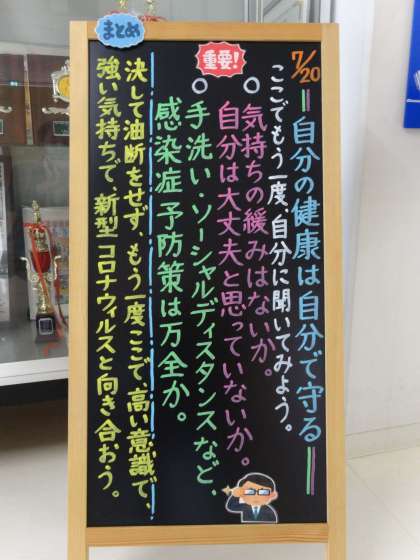 7/20
＝自分の健康は自分で守る＝
ここでもう一度、自分に聞いてみよう。
重要!
○気持ちの緩みはないか。
自分は大丈夫と思っていないか。
○手洗い・ソーシャルディスタンスなど、
感染症予防策は万全か。
まとめ
決して油断をせず、もう一度ここで、高い意識で、
強い気持ちで、新型コロナウィルスと向き合おう。